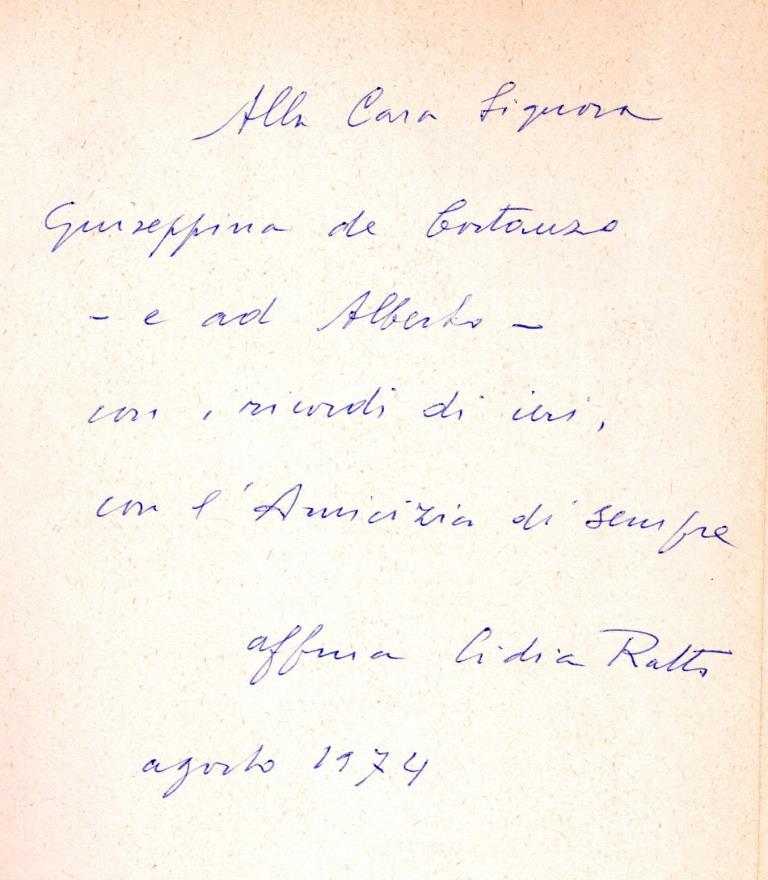 Alla Cara Signora
Giuseppina de Costanzo
- e ad Alberto -
con i ricordi di ieri,
con l'Amicizia di sempre
affma Lidia Ratto
agosto 1974